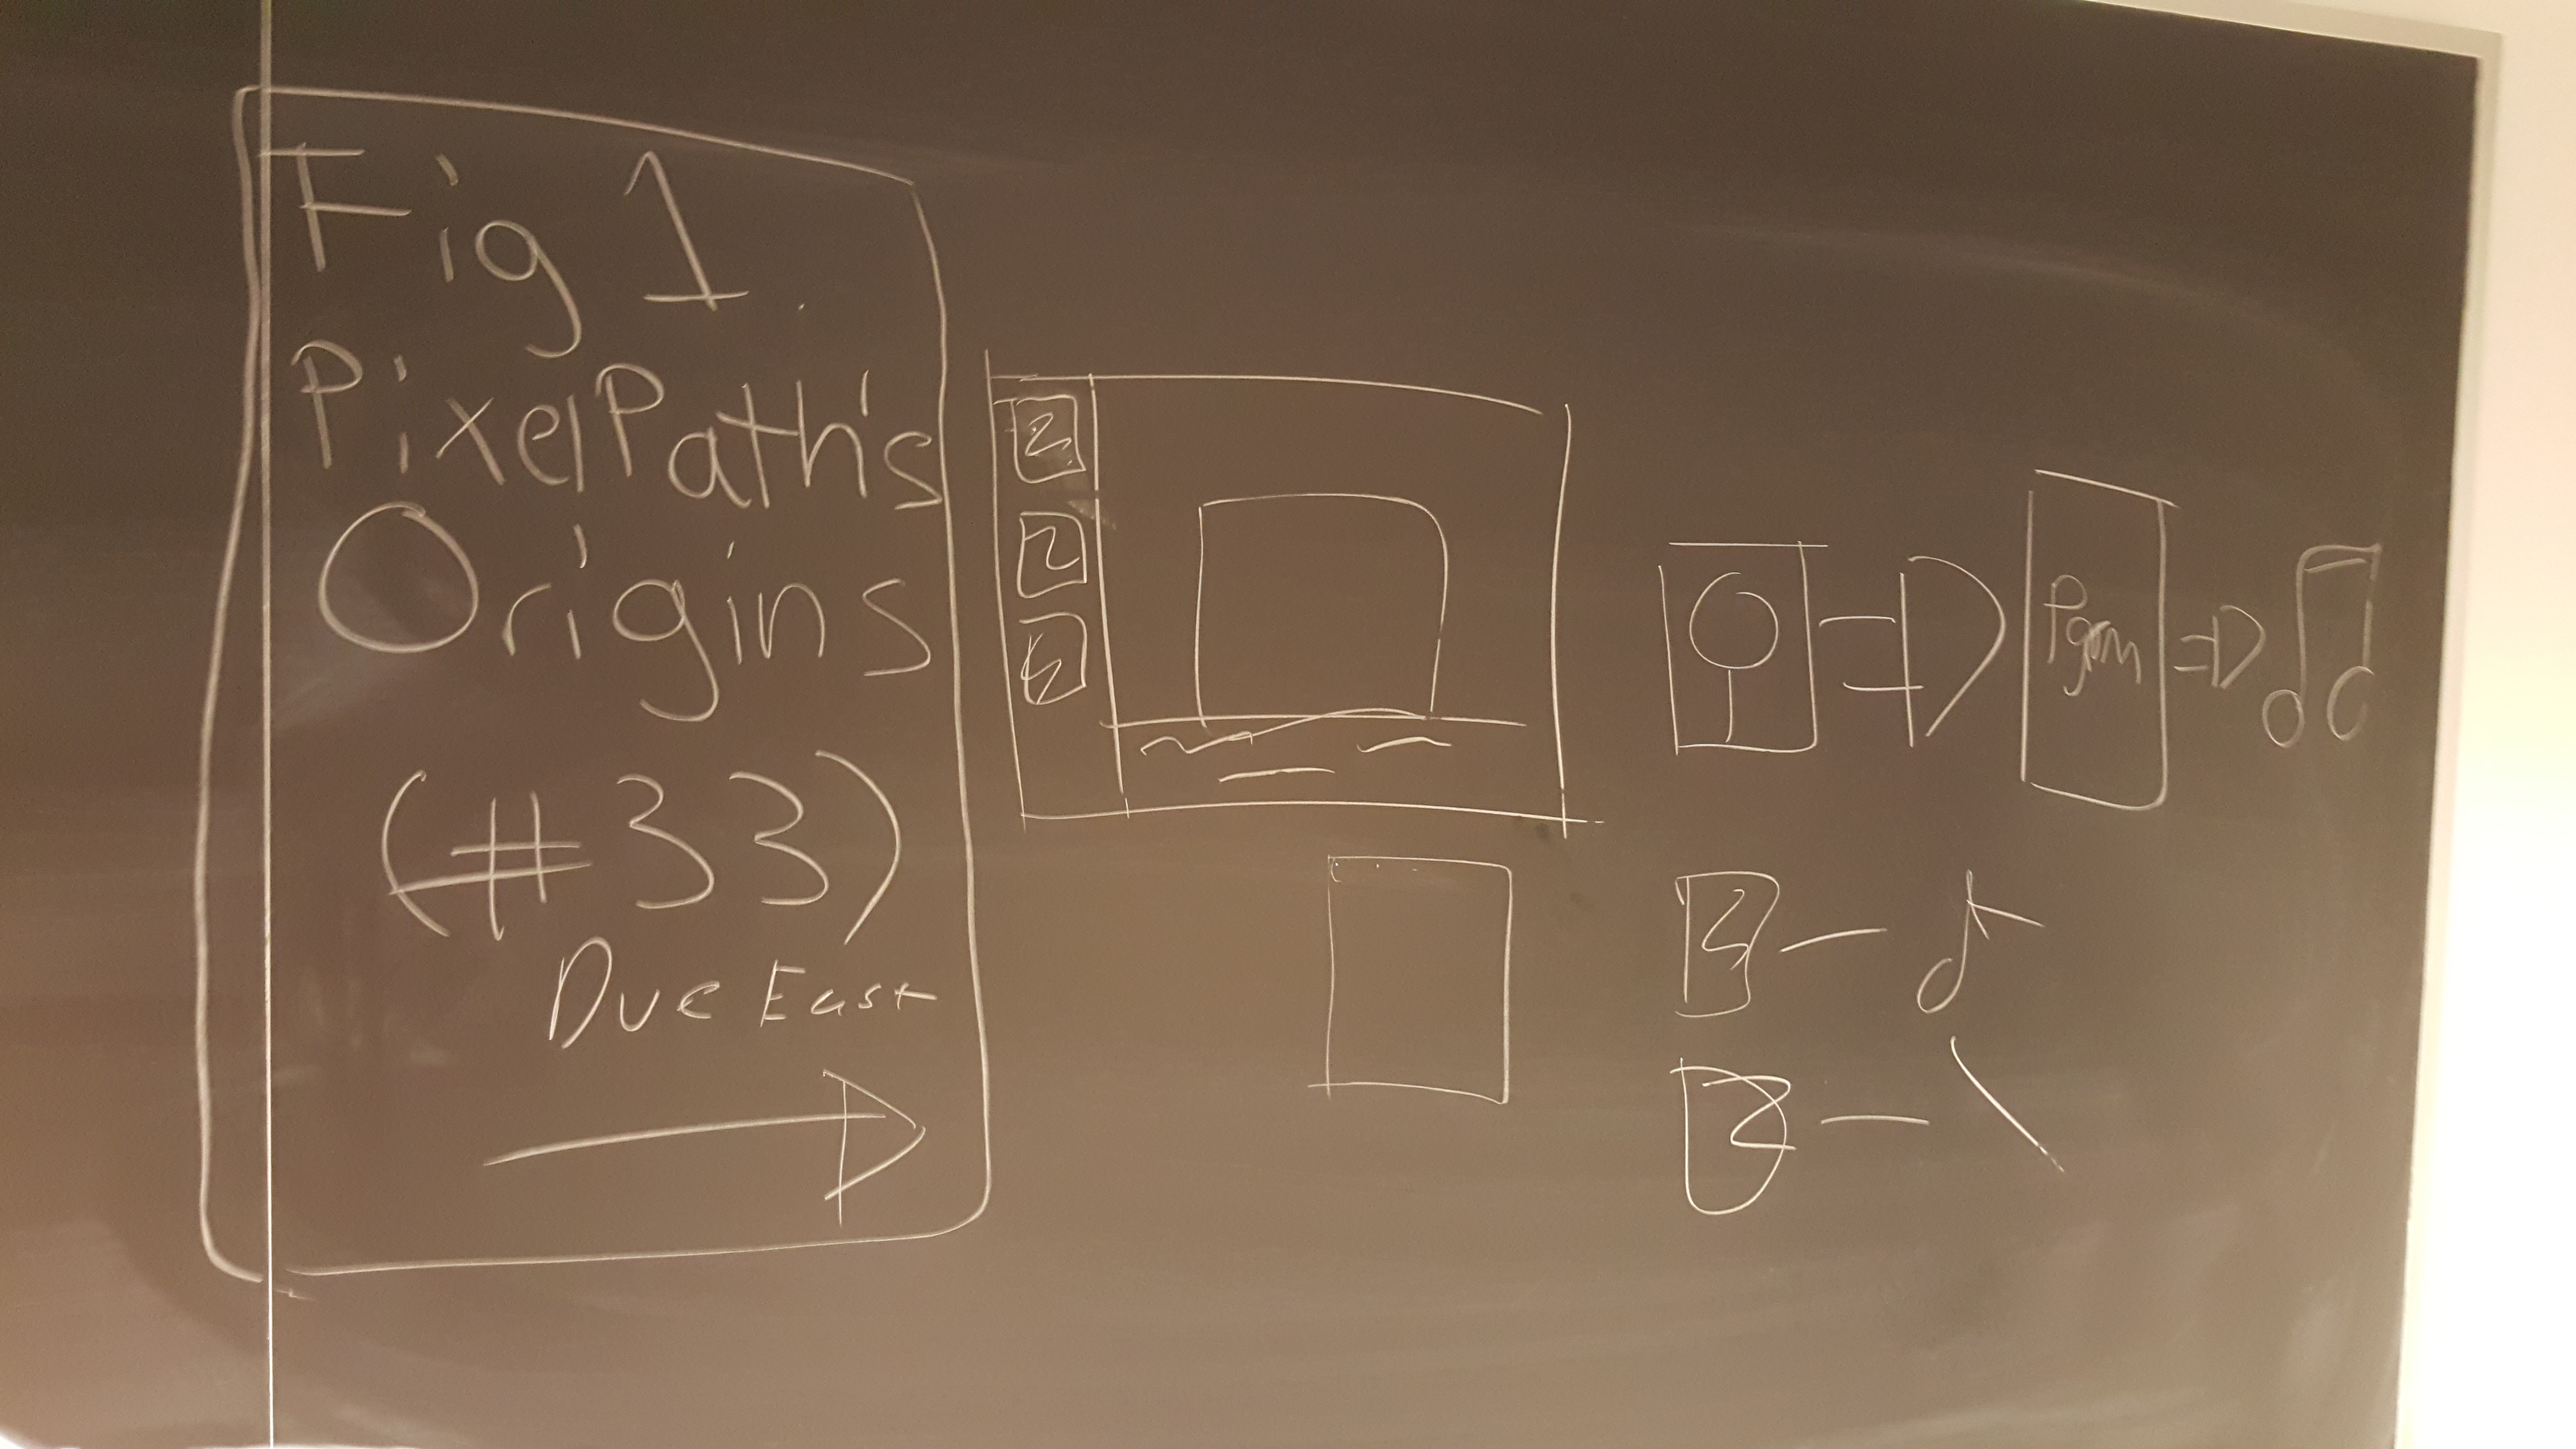 Fig 1.
PixelPath's
Origins
(#33)
Due East
Pgrm